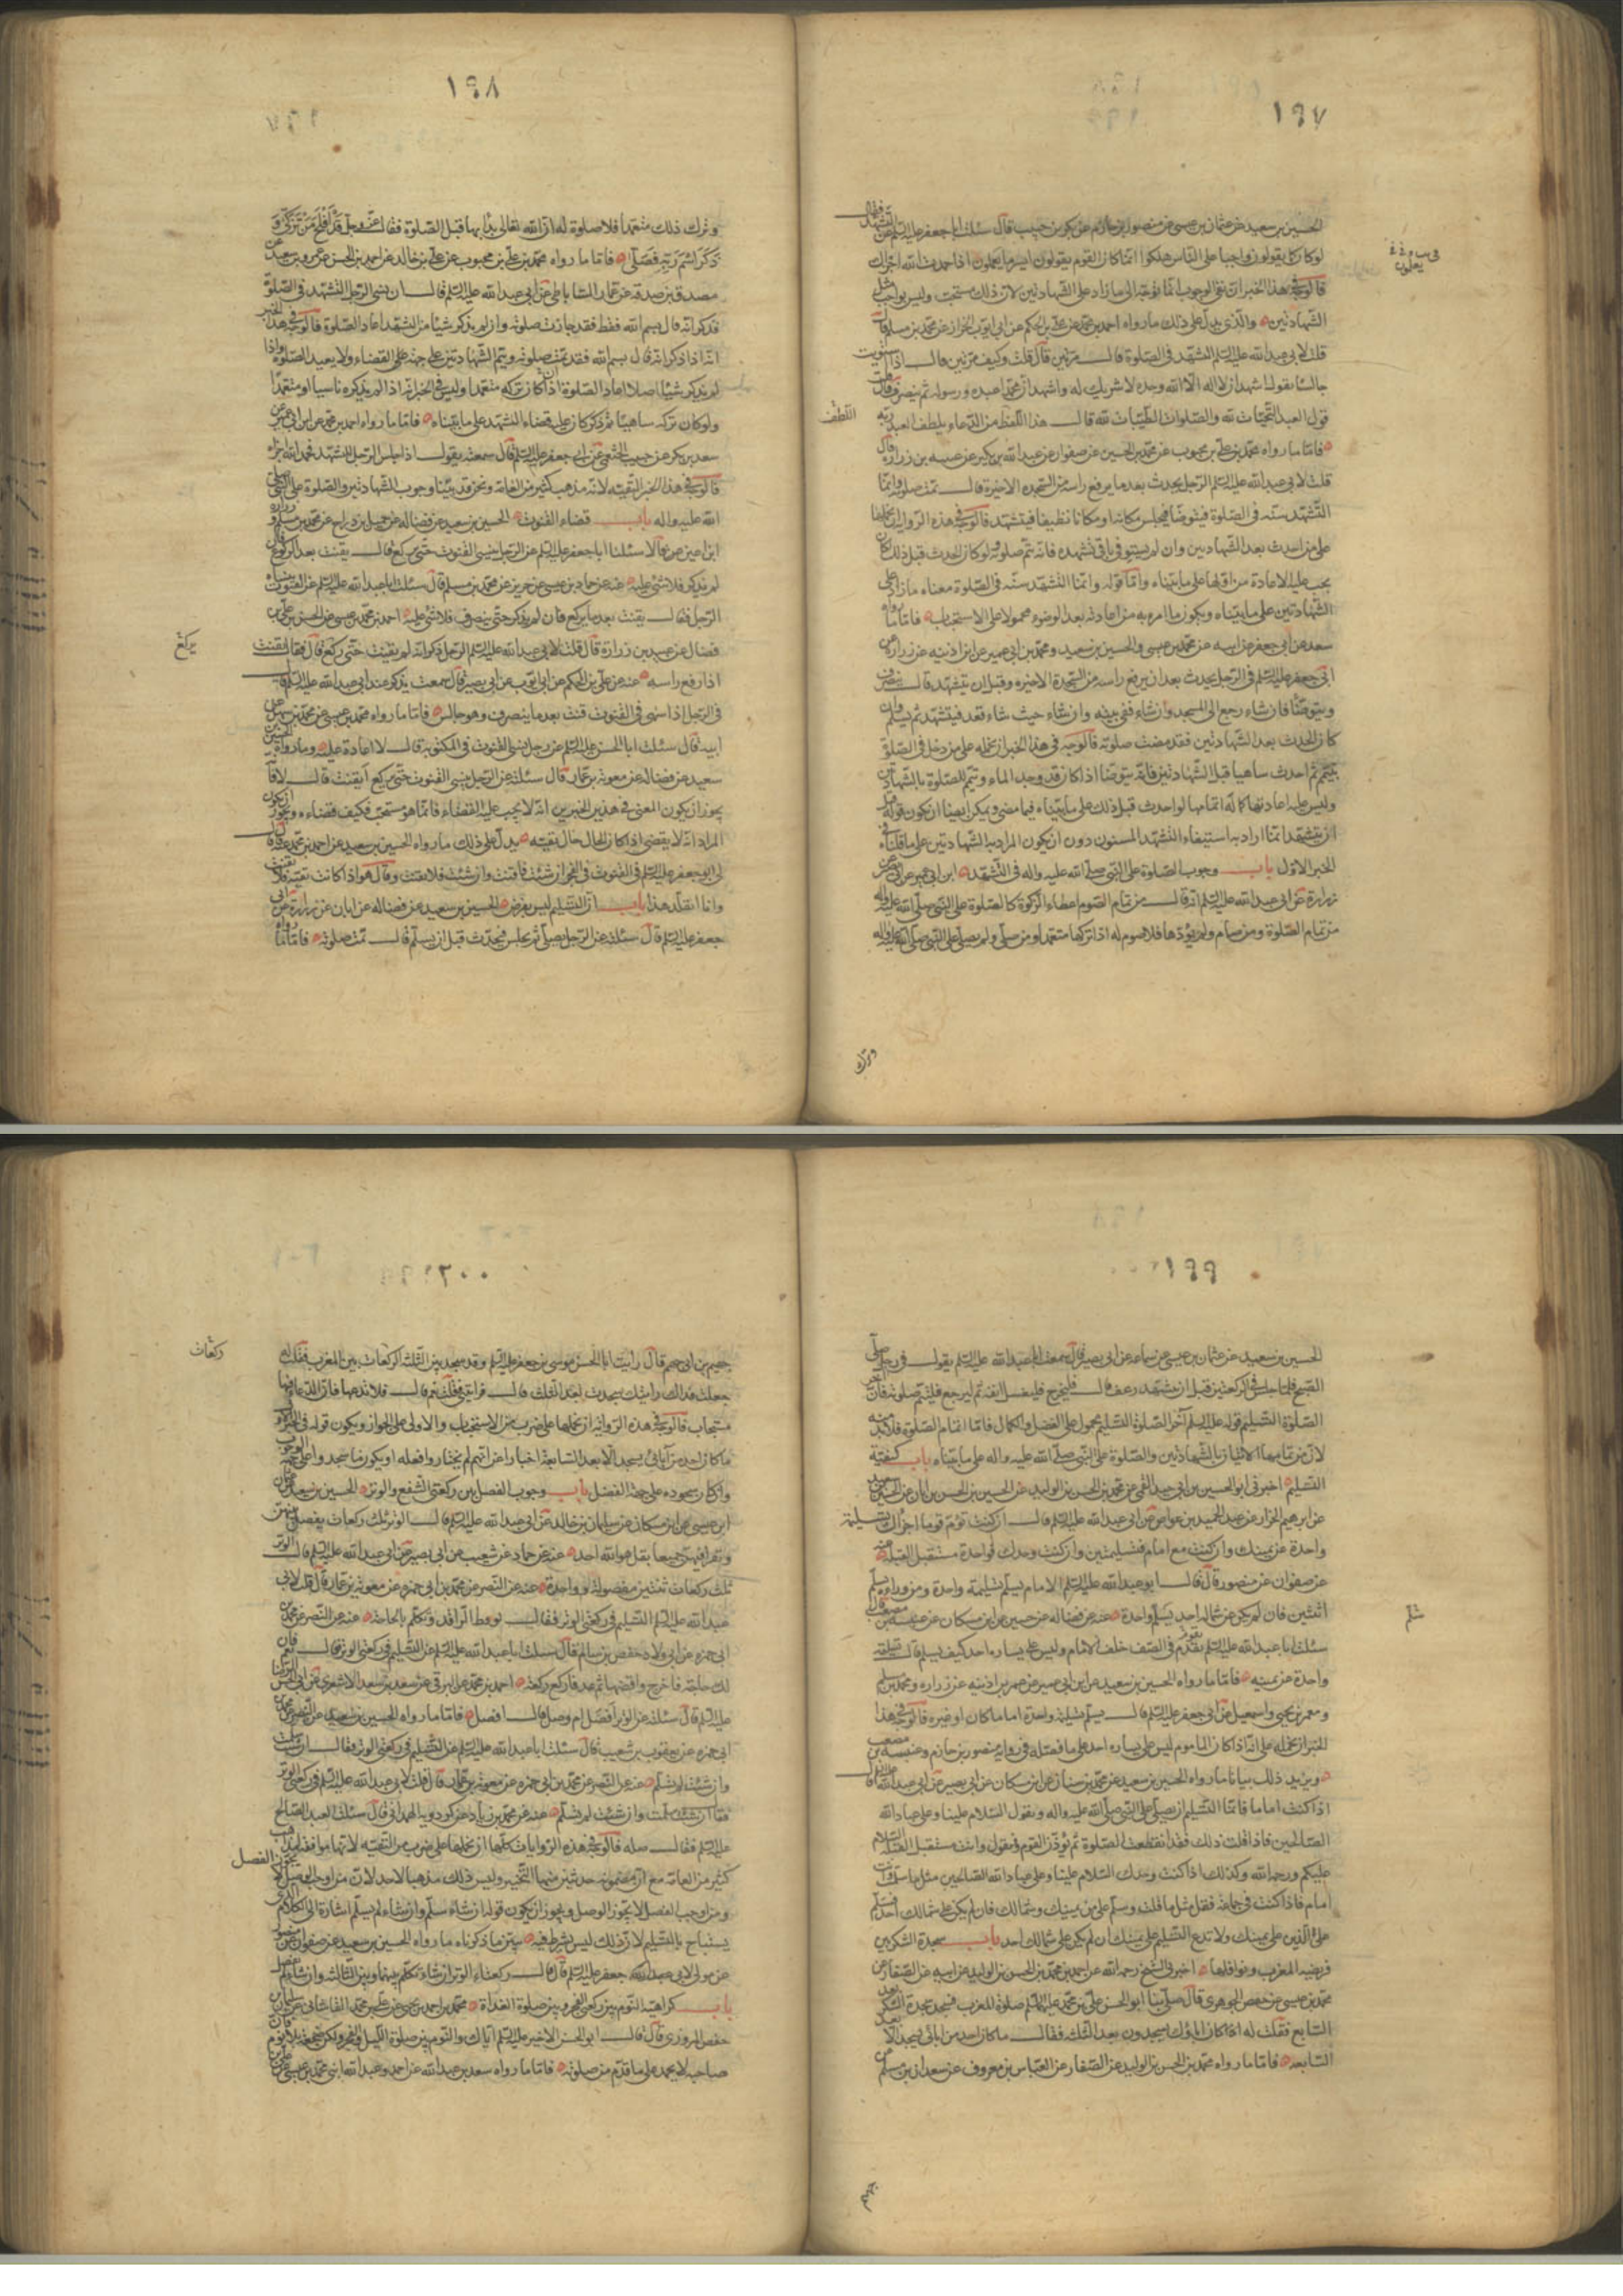 ١٩٧
الحسين بن سعيد عن عثمان بن عيسى عن منصور بن حازم عن بكر بن حبيب قال سئلت ابا جعفر عليه السلم عن التشهد فقال
لو كان كما يقولون واجبا على الناس هلكوا انما كان القوم يقولون ايسر ما يعلمون اذا حمدت الله اجزاك
فالوجه في هذا الخبر ان نفى الوجوب انما توجه الى ما زاد على الشهادتين لان ذلك مستحب وليس بواجب مثل
الشهادتين والذى يدل على ذلك ما رواه احمد بن محمد عن على بن الحكم عن ابى ايوب الخزاز عن محمد بن مسلم قال
قلت لابى عبد الله عليه السلم التشهد فى الصلوة قال مرتين قال قلت وكيف مرتين قال اذا استويت
جالسا فقل اشهد ان لا اله الا الله وحده لا شريك له واشهد ان محمدا عبده ورسوله ثم ينصرف قال قلت
قول العبد التحيات لله والصلوات الطيبات لله قال هذا اللفظ من الدعاء يلطف العبد ربه
فاما ما رواه محمد بن على بن محبوب عن محمد بن الحسين عن صفوان عن عبد الله بن بكير عن عبيد بن زرارة قال
قلت لابى عبد الله عليه السلم الرجل يحدث بعد ما يرفع راسه من السجدة الاخيرة قال تمت صلوته وانما
التشهد سنة فى الصلوة فيتوضا فيجلس مكانه او مكانا نظيفا فيتشهد فالوجه فى هذه الرواية ان نحملها
على من احدث بعد الشهادتين وان لم يستوف باقى تشهده فانه تتم صلوته ولو كان الحدث قبل ذلك كان
يجب عليه الاعادة من اولها على ما بيناه واما قوله وانما التشهد سنة فى الصلوة معناه ما زاد على
الشهادتين على ما بيناه ويكون ما امر به من اعادته بعد الوضوء محمولا على الاستحباب فاما ما رواه
سعد عن ابى جعفر عن ابيه عن محمد بن عيسى والحسين بن سعيد ومحمد بن ابى عمير عن ابن اذينة عن زرارة عن
ابى جعفر عليه السلم فى الرجل يحدث بعد ان يرفع راسه من السجدة الاخيرة وقبل ان يتشهد قال ينصرف
ويتوضا فان شاء رجع الى المسجد وان شاء ففى بيته وان شاء حيث شاء قعد فيتشهد ثم يسلم وان
كان الحدث بعد الشهادتين فقد مضت صلوته فالوجه فى هذا الخبر ان نحمله على من دخل فى الصلوة
بتيمم ثم احدث ساهيا قبل الشهادتين فانه يتوضا اذا كان قد وجد الماء ويتم الصلوة بالشهادتين
وليس عليه اعادتها كما له اتمامها لو احدث قبل ذلك على ما بيناه فيما مضى ويمكن ايضا ان يكون قوله قبل
ان يتشهد انما اراد به استيفاء التشهد المسنون دون ان يكون المراد به الشهادتين على ما قلناه فى
الخبر الاول باب وجوب الصلوة على النبى صلى الله عليه واله فى التشهد ابن ابى عمير عن ابى بصير عن
زرارة عن ابى عبد الله عليه السلم انه قال من تمام الصوم اعطاء الزكوة كالصلوة على النبى صلى الله عليه واله
من تمام الصلوة ومن صام ولم يؤدها فلا صوم له اذا تركها متعمدا ومن صلى ولم يصل على النبى صلى الله عليه واله
وترك
اللطف
١٩٨
وترك ذلك متعمدا فلا صلوة له ان الله تعالى بدا بها قبل الصلوة فقال عز وجل قد افلح من تزكى و
ذكر اسم ربه فصلى فاما ما رواه محمد بن على بن محبوب عن على بن خالد عن احمد بن الحسن عن عمرو بن سعيد عن
مصدق بن صدقة عن عمار الساباطى عن ابى عبد الله عليه السلم قال ان نسى الرجل التشهد فى الصلوة
فذكر انه قال بسم الله فقط فقد جازت صلوته وان لم يذكر شيئا من التشهد اعاد الصلوة فالوجه فى هذا الخبر
انه اذا ذكر انه قال بسم الله فقد تمت صلوته ويتم الشهادتين على جهة القضاء ولا يعيد الصلوة واذا
لم يذكر شيئا اصلا اعاد الصلوة اذا كان تركه متعمدا وليس فى الخبر انه اذا لم يذكره ناسيا او متعمدا
ولو كان تركه ساهيا ثم ذكر كان عليه قضاء التشهد على ما بيناه فاما ما رواه احمد بن محمد عن ابن ابى عمير عن
سعد بن بكر عن حبيب الخثعمى عن ابى جعفر عليه السلم قال سمعته يقول اذا جلس الرجل للتشهد فحمد الله اجزاه
فالوجه فى هذا الخبر التقية لانه مذهب كثير من العامة ونحن قد بينا وجوب الشهادتين والصلوة على النبى صلى
الله عليه واله باب قضاء القنوت الحسين بن سعيد عن فضالة عن جميل بن دراج عن محمد بن مسلم وزرارة
ابن اعين قالا سئلنا ابا جعفر عليه السلم عن الرجل ينسى القنوت حتى يركع قال يقنت بعد الركوع فان
لم يذكر فلا شئ عليه عنه عن حماد بن عيسى عن حريز عن محمد بن مسلم قال سئلت ابا عبد الله عليه السلم عن القنوت ينساه
الرجل فقال يقنت بعد ما يركع فان لم يذكر حتى ينصرف فلا شئ عليه احمد بن محمد بن عيسى عن الحسن بن على بن
فضال عن عبيد بن زرارة قال قلت لابى عبد الله عليه السلم الرجل ذكر انه لم يقنت حتى ركع قال فقال يقنت
اذا رفع راسه عنه عن على بن الحكم عن ابى ايوب عن ابى بصير قال سمعت يذكر عند ابى عبد الله عليه السلم قال
فى الرجل اذا سهى فى القنوت قنت بعد ما ينصرف وهو جالس فاما ما رواه محمد بن عيسى عن محمد بن سهل عن
ابيه قال سئلت ابا الحسن عليه السلم عن رجل نسى القنوت فى المكتوبة قال لا اعادة عليه وما رواه الحسين بن
سعيد عن فضالة عن معوية بن عمار قال سئلته عن الرجل ينسى القنوت حتى يركع ايقنت قال لا فانه
يجوز ان يكون المعنى فى هذين الخبرين انه لا يجب عليه القضاء فانما هو مستحب فكيف قضاءه ويجوز ان يكون
المراد انه لا يقضى اذا كان الحال حال تقية يدل على ذلك ما رواه الحسين بن سعيد عن احمد بن محمد عنه قال قال
لى ابو جعفر عليه السلم فى القنوت فى الفجر ان شئت فاقنت وان شئت فلا تقنت وقال هو اذا كانت تقية فلا تقنت
وانا اتقلد هذا باب ان التسليم ليس بفرض الحسين بن سعيد عن فضالة عن ابان عن زرارة عن ابى
جعفر عليه السلم قال سئلته عن الرجل يصلى ثم يجلس فيحدث قبل ان يسلم قال تمت صلوته فاما ما رواه
يركع
١٩٩
الحسين بن سعيد عن عثمان بن عيسى عن سماعة عن ابى بصير قال سمعت ابا عبد الله عليه السلم يقول فى رجل صلى
الصبح فلما جلس فى الركعتين قبل ان يتشهد رعف قال فليخرج فليغسل انفه ثم ليرجع فليتم صلوته فان اخر
الصلوة التسليم قوله عليه السلم آخر الصلوة التسليم محمول على الفضل والكمال فاما اتمام الصلوة فلا بد منه
لان من تمامها الاتيان بالشهادتين والصلوة على النبى صلى الله عليه واله على ما بيناه باب كيفية
التسليم اخبرنى ابو الحسين بن ابى جيد القمى عن محمد بن الحسن بن الوليد عن الحسين بن الحسن بن ابان عن الحسين بن سعيد
عن ابرهيم الخزاز عن عبد الحميد بن عواض عن ابى عبد الله عليه السلم قال ان كنت تؤم قوما اجزاك تسليمة
واحدة عن يمينك وان كنت مع امام فتسليمتين وان كنت وحدك فواحدة مستقبل القبلة عنه
عن صفوان عن منصور قال قال ابو عبد الله عليه السلم الامام يسلم تسليمة واحدة ومن وراءه يسلم
اثنتين فان لم يكن عن شماله احد يسلم واحدة عنه عن فضالة عن حسين عن ابن مسكان عن عنبسة بن مصعب قال
سئلت ابا عبد الله عليه السلم يقوم فى الصف خلف الامام وليس على يساره احد كيف يسلم قال تسليمة
واحدة عن يمينه فاما ما رواه الحسين بن سعيد عن ابن ابى عمير عن عمر بن اذينة عن زرارة ومحمد بن مسلم
ومعمر بن يحيى واسمعيل عن ابى جعفر عليه السلم قال يسلم تسليمة واحدة اماما كان او غيره فالوجه فى هذا
الخبر ان نحمله على انه اذا كان الماموم ليس على يساره احد على ما فصله فى رواية منصور بن حازم وعنبسة بن مصعب
ويزيد ذلك بيانا ما رواه الحسين بن سعيد عن محمد بن سنان عن ابن مسكان عن ابى بصير عن ابى عبد الله عليه السلم قال
اذا كنت اماما فانما التسليم ان يصلى على النبى صلى الله عليه واله وتقول السلام علينا وعلى عباد الله
الصالحين فاذا قلت ذلك فقد انقطعت الصلوة ثم تؤذن القوم فتقول وانت مستقبل القبلة السلام
عليكم ورحمة الله وكذلك اذا كنت وحدك السلام علينا وعلى عباد الله الصالحين مثل ما سلمت وانت
امام فاذا كنت فى جماعة فقل مثل ما قلت وسلم على من يمينك وشمالك فان لم يكن على شمالك احد فسلم
على الذين على يمينك ولا تدع التسليم على يمينك ان لم يكن على شمالك احد باب سجدة الشكر بين
فريضة المغرب ونوافلها اخبرنى الشيخ رحمه الله عن احمد بن محمد بن الحسن بن الوليد عن ابيه عن الصفار عن
محمد بن عيسى عن حفص الجوهرى قال صلى بنا ابو الحسن على بن محمد عليهما السلم صلوة المغرب فسجد سجدة الشكر بعد
السابع فقلت له كان اباؤك يسجدون بعد الثلثة فقال ما كان احد من ابائى يسجد الا بعد
السابعة فاما ما رواه محمد بن الحسن بن الوليد عن الصفار عن العباس بن معروف عن سعدان بن مسلم عن
جهيم
٢٠٠
جهيم بن ابى جهم قال رايت ابا الحسن موسى بن جعفر عليه السلم وقد سجد بين الثلثة الركعات بين المغرب فقلت له
جعلت فداك رايتك سجدت بعد الثلث قال ورايتنى فقلت نعم قال فلا تدعها فان الدعاء فيها
مستجاب فالوجه فى هذه الرواية ان نحملها على ضرب من الاستحباب والاولى على الجواز ويكون قوله فى الخبر الاول
ما كان احد من آبائى يسجد الا بعد السابعة اخبارا عن انهم لم يختاروا فعله
وان كان سجوده على جهة الفضل باب وجوب الفصل بين ركعتى الشفع والوتر الحسين بن سعيد عن عثمان
ابن عيسى عن ابن مسكان عن سليمان بن خالد عن ابى عبد الله عليه السلم قال الوتر ثلث ركعات يفصل بينهن
ويقرا فيهن جميعا بقل هو الله احد عنه عن حماد عن شعيب عن ابى بصير عن ابى عبد الله عليه السلم قال الوتر
ثلث ركعات ثنتين مفصولة وواحدة عنه عن النضر عن محمد بن ابى حمزة عن معوية بن عمار قال قلت لابى
عبد الله عليه السلم التسليم فى ركعتى الوتر فقال توقظ الراقد وتكلم بالحاجة عنه عن النضر عن محمد بن
ابى حمزة عن ابى ولاد حفص بن سالم قال سئلت ابا عبد الله عليه السلم عن التسليم فى ركعتى الوتر قال نعم فان
لك حاجة فاخرج واقضها ثم عد فاركع ركعة احمد بن محمد عن البرقى عن سعد بن سعد الاشعرى عن ابى الحسن الرضا
عليه السلم قال سئلته عن الوتر افصل ام وصل قال افصل فاما ما رواه الحسين بن سعيد عن النضر عن محمد بن
ابى حمزة عن يعقوب بن شعيب قال سئلت ابا عبد الله عليه السلم عن التسليم فى ركعتى الوتر فقال ان شئت سلمت
وان شئت لم تسلم عنه عن النضر عن محمد بن ابى حمزة عن معوية بن عمار قال قلت لابى عبد الله عليه السلم فى ركعتى الوتر
فقال ان شئت سلمت وان شئت لم تسلم عنه عن محمد بن زياد عن كردويه الهمدانى قال سئلت العبد الصالح
عليه السلم فقال صله فالوجه فى هذه الروايات كلها ان نحملها على ضرب من التقية لانها موافقة لمذهب
كثير من العامة مع ان مضمون حديثين منها التخيير وليس ذلك مذهبا لاحد لان من اوجب الوصل لا يجوز الفصل
ومن اوجب الفصل لا يجوز الوصل ويجوز ان يكون قوله ان شاء سلم وان شاء لم يسلم اشارة الى الكلام الذى
يستباح بالتسليم لان ذلك ليس بشرط فيه يبين ما ذكرناه ما رواه الحسين بن سعيد عن صفوان عن منصور
عن مولى لابى جعفر عليه السلم قال قال ركعتا الوتر ان شاء تكلم بينهما وبين الثالثة وان شاء لم يفعل
باب كراهية النوم بين ركعتى الفجر وبين صلوة الغداة محمد بن احمد بن يحيى عن على بن محمد القاشانى عن سليمان بن
حفص المروزى قال قال ابو الحسن الاخير عليه السلم اياك والنوم بين صلوة الليل والفجر ولكن ضجعة بلا نوم فان
صاحبه لا يحمد على ما قدم من صلوته فاما ما رواه سعد بن عبد الله عن احمد وعبد الله ابنى محمد بن عيسى عن على بن
ركعات